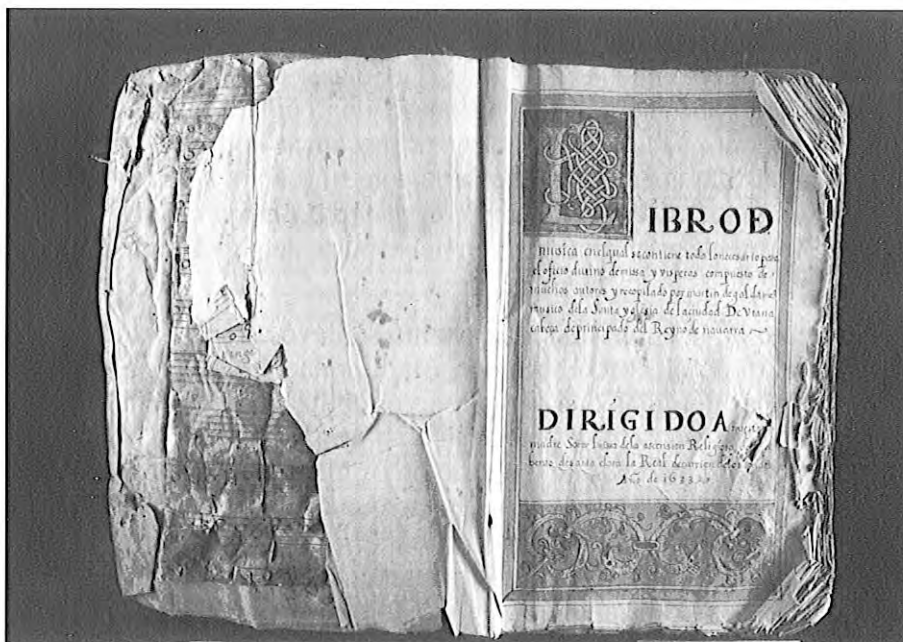 LIBRO D
musica en el qual se contiene todo lo necesario para
el oficio divino de missa y visperas compuesto de
muchos autores y recopilado por martin de goldaraz
musico de la Santa yglesia de la ciudad De Viana
cabeça de principado del Reyno de navarra
DIRIGIDO A
madre Sor luisa de la ascension Religiosa
de la Real de carrion de los
Año de 1633